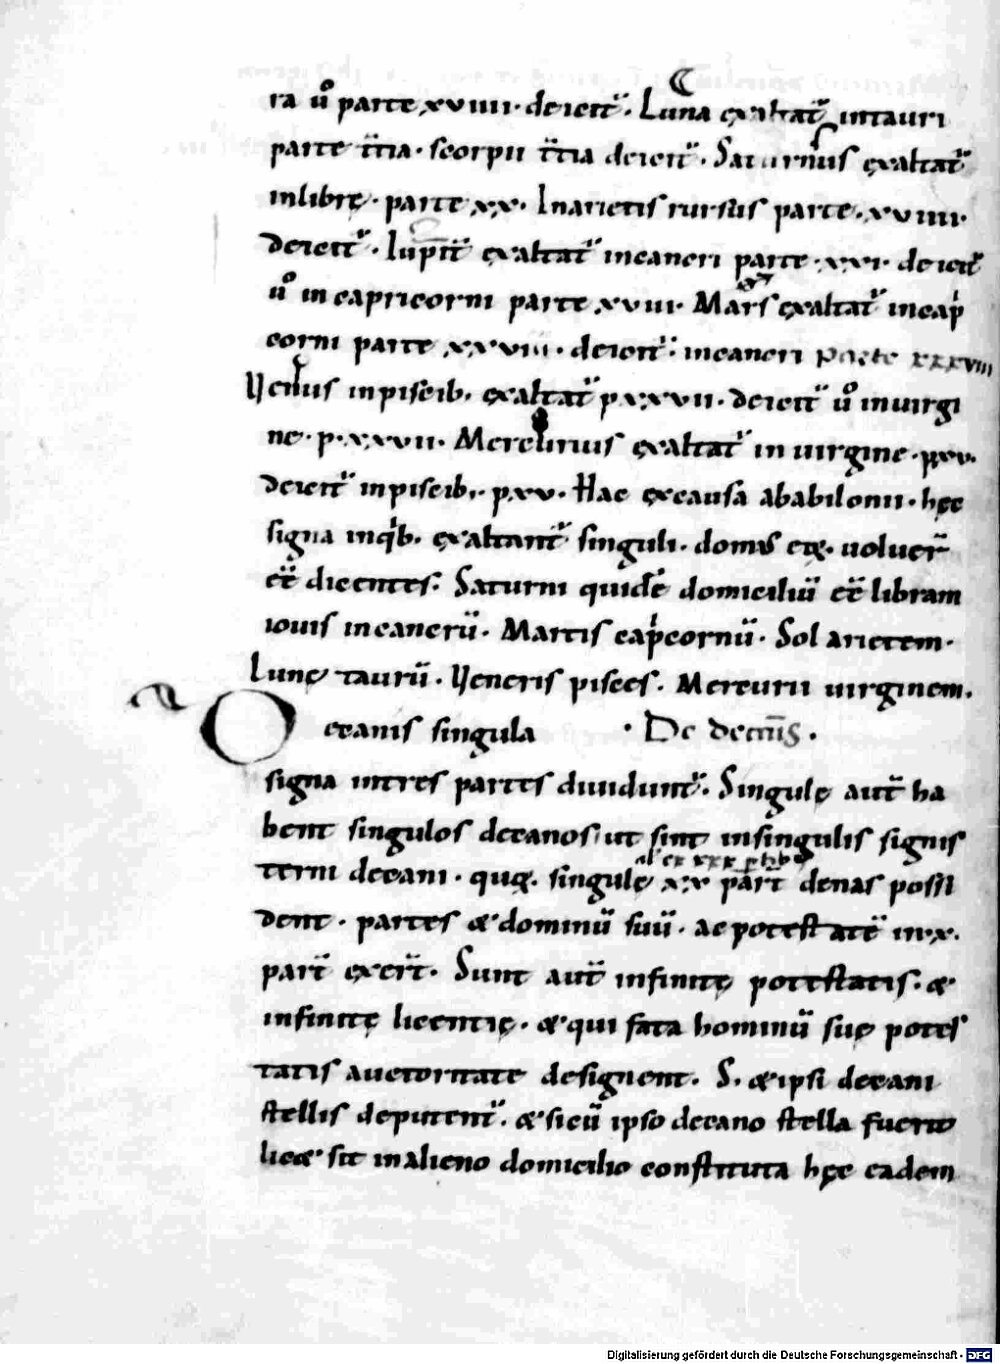 ra ů parte xviiii· deicit̃· Luna exaltat̃ intauri
parte t̃tia· scorpii t̃tia deicit̃· Saturnus exaltat̃
inlibrę· parte xx· Inarietis rursus parte· xviiii·
deicit̃· Iupit̃ exaltat̃ incancri parte ·xvi· deicit̃
ů incapricorni parte xviii· Mars exaltat̃ incap̍
corni parte xxviii· deicit̃· incancri parte xxxviii
Uenus inpiscib· exaltat̃ p xxvii· deicit̃ ů inuirgi
ne· p· xxvii· Mercurius exaltat̃ in uirgine· p xv·
deicit̃ inpiscib· p xv· Hac excausa ababilonii· hęc
signa inq̍b· exaltant̃ singuli· domus eꝝ· uoluer̃
ēē dicentes· Saturni quidē domiciliū ēē libram
iouis incancrū· Martis cap̍cornū· Sol arietem·
Lunę taurū· Ueneris pisces· Mercurii uirginem·
D ecanis singula · De decanis ·
signa intres partes diuidunt̃· Singulę aut̃ ha
bent singulos decanos ut sint insingulis signis
al̃ ex xxx
terni decani· quꝝ· singulę x:v part̃ denas possi
dent· partes & dominū suū· ac potestatē in·x·
part̃ exert̃· Sunt aut̃ infinitę potestatis· &
infinitę licentię· & qui fata hominū suę potes
tatis auctoritate designent· S· & ipsi decani
stellis deputent̃· & sicū ipso decano stella fuerit
lic& sit inalieno domicilio constituta hęc eadem
Digitalisierung gefördert durch die Deutsche Forschungsgemeinschaft - DFG